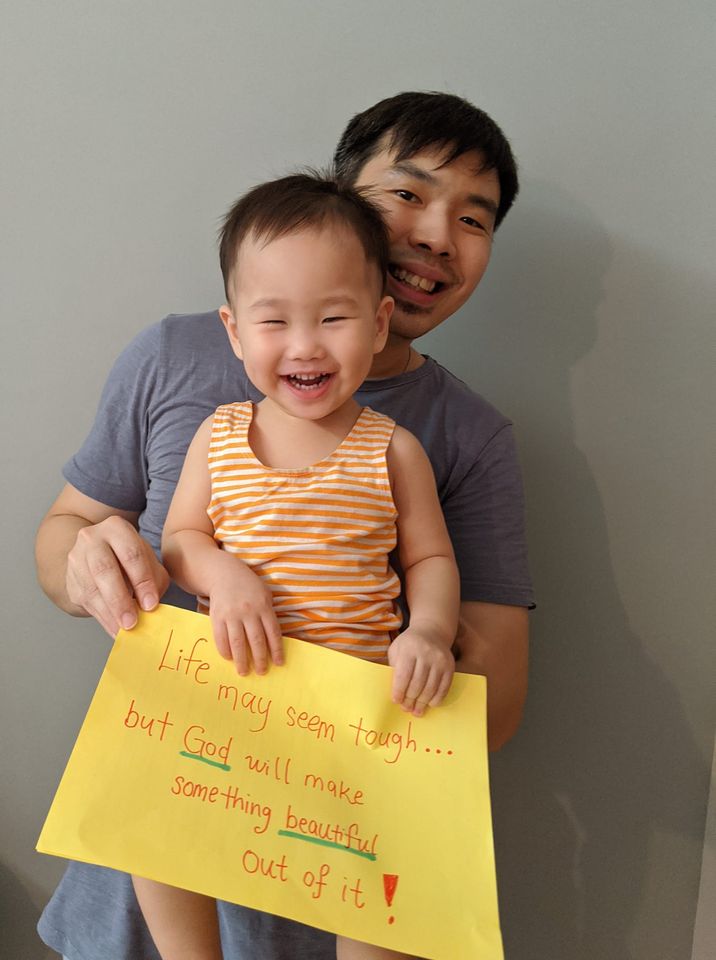 Life may seem tough...
but God will make
something beautiful
out of it!